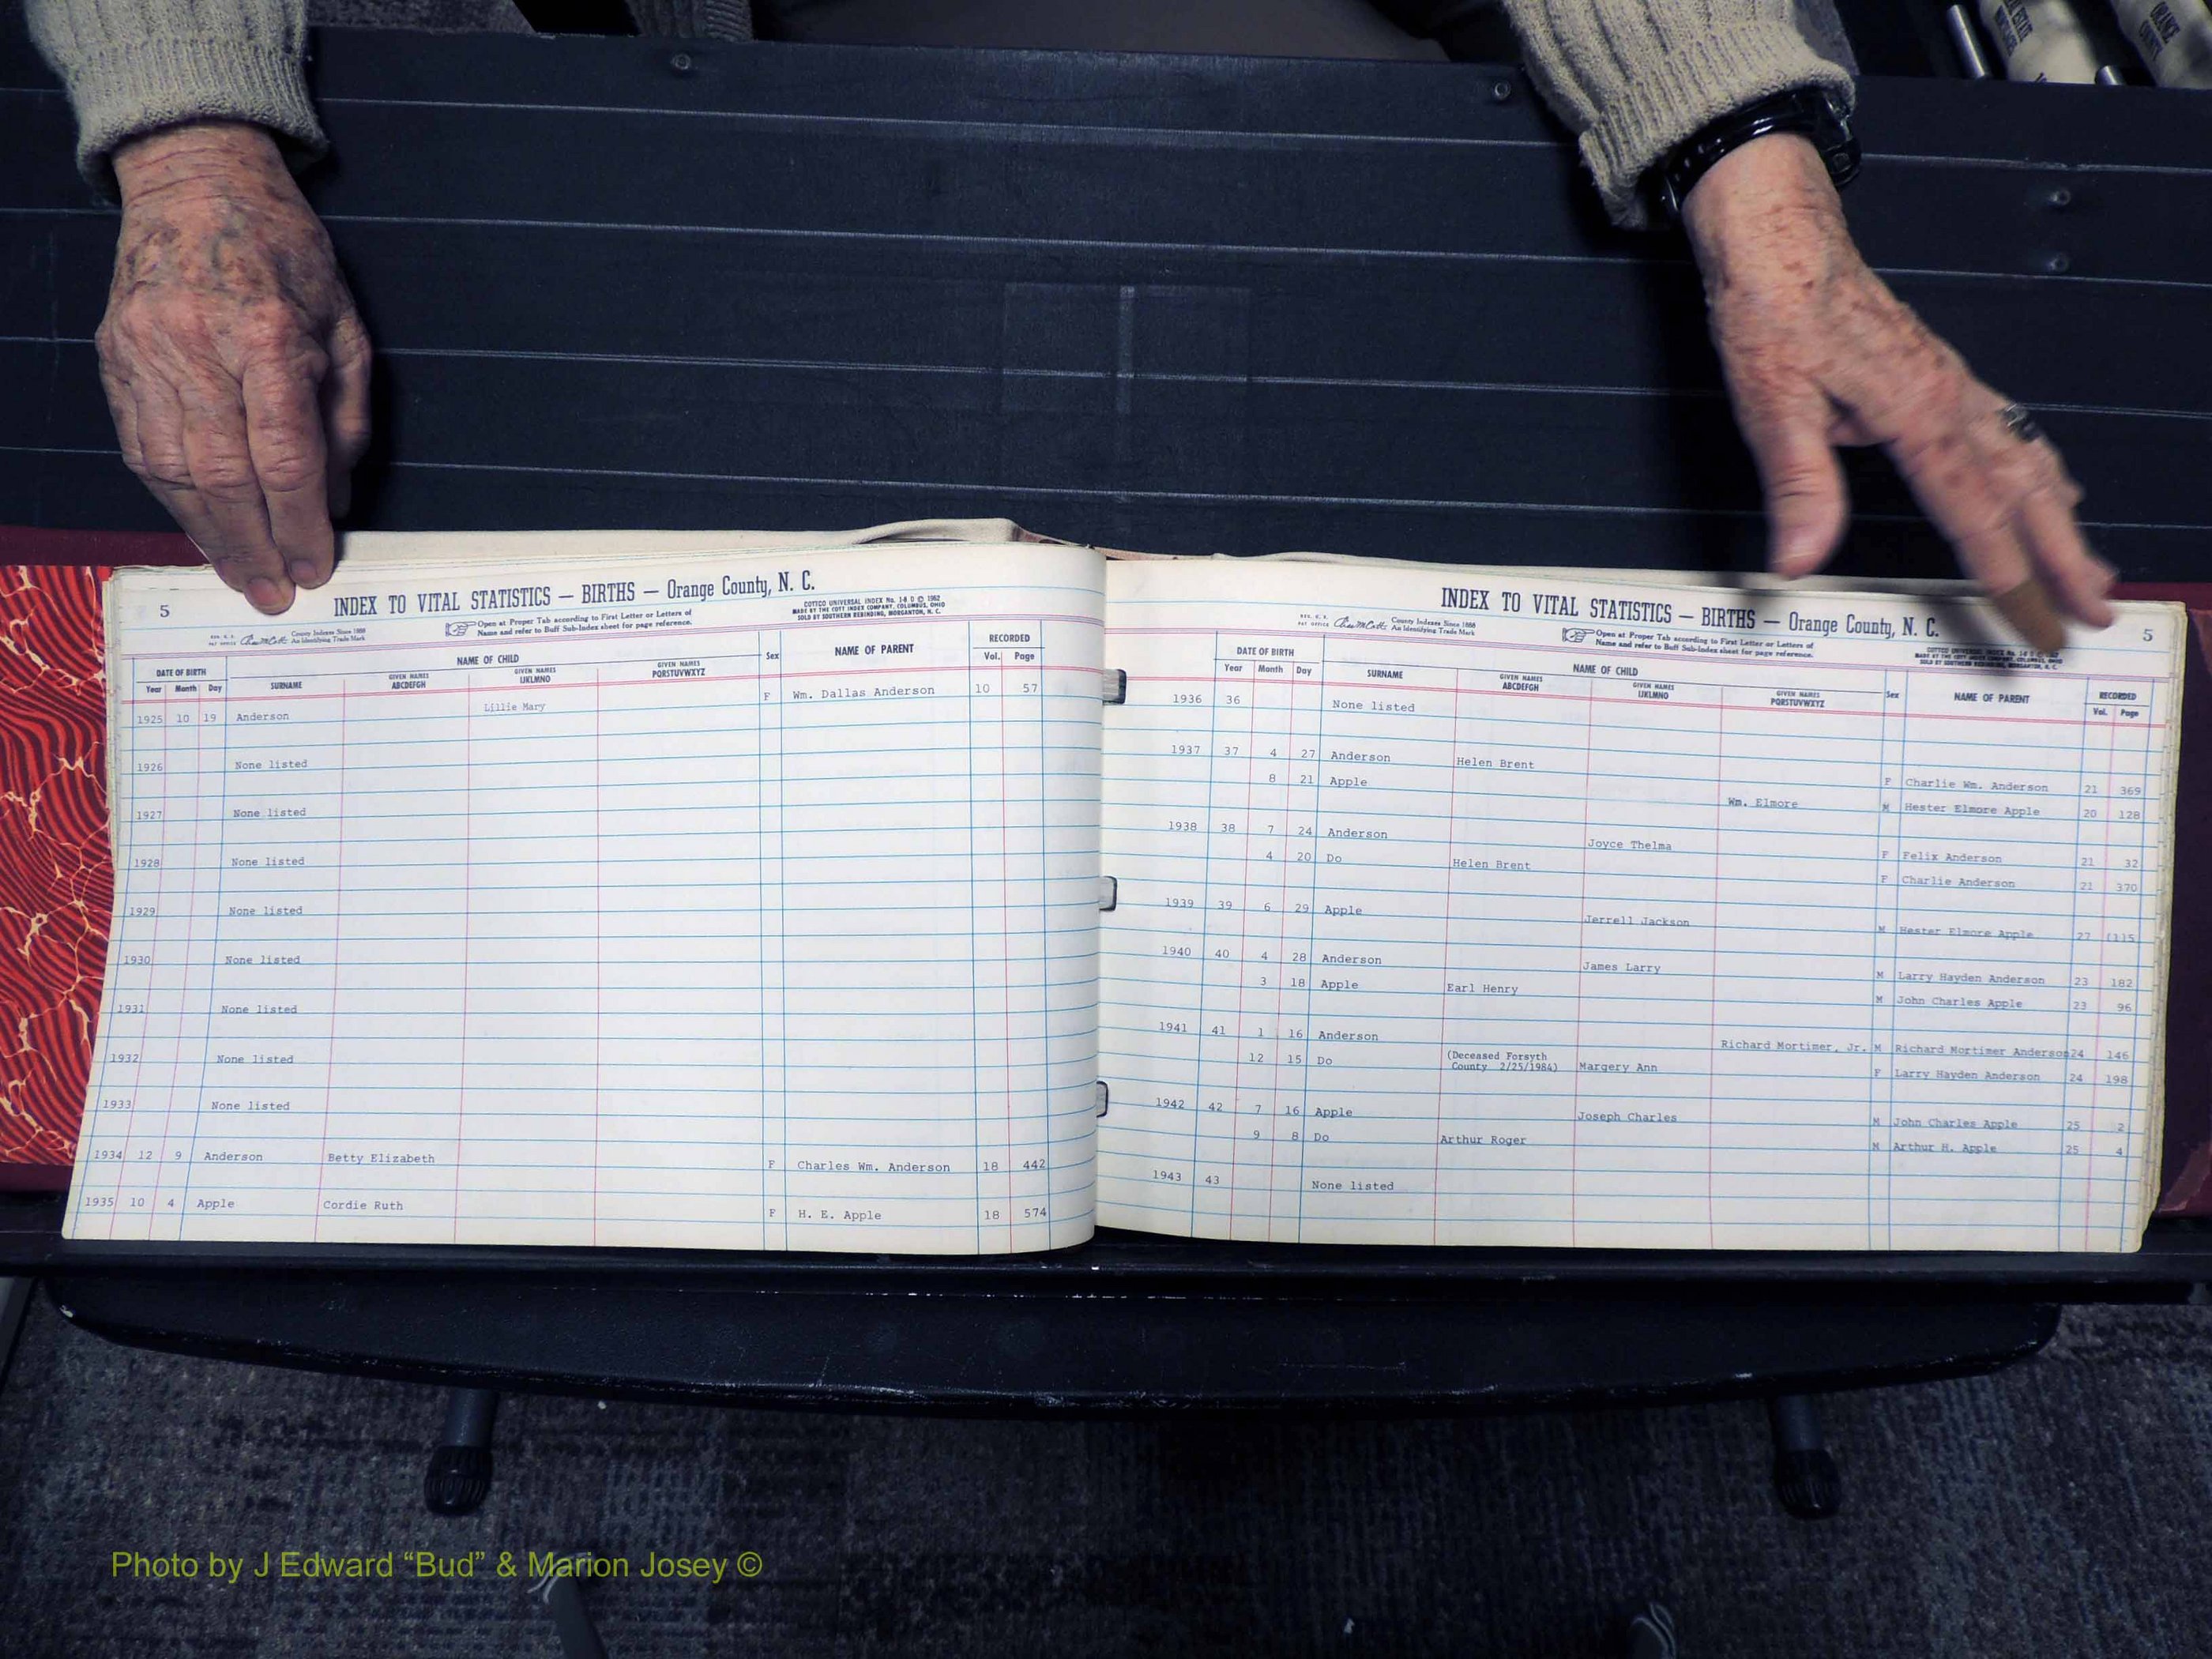 REAL ESTATE
ORANGE
COUNTY
5
INDEX TO VITAL STATISTICS — BIRTHS — Orange County, N. C.
COTTCO UNIVERSAL INDEX No. 1-8 D © 1962
MADE BY THE COTT INDEX COMPANY, COLUMBUS, OHIO
SOLD BY SOUTHERN REBINDING, MORGANTON, N. C.
County Indexes Since 1888
An Identifying Trade Mark
Open at Proper Tab according to First Letter or Letters of
Name and refer to Buff Sub-Index sheet for page reference.
DATE OF BIRTH NAME OF CHILD Sex NAME OF PARENT RECORDED
Year Month Day SURNAME GIVEN NAMES ABCDEFGH GIVEN NAMES IJKLMNO GIVEN NAMES PQRSTUVWXYZ Vol. Page
1925 10 19 Anderson Lillie Mary F Wm. Dallas Anderson 10 57
1926 None listed
1927 None listed
1928 None listed
1929 None listed
1930 None listed
1931 None listed
1932 None listed
1933 None listed
1934 12 9 Anderson Betty Elizabeth F Charles Wm. Anderson 18 442
1935 10 4 Apple Cordie Ruth F H. E. Apple 18 574
INDEX TO VITAL STATISTICS — BIRTHS — Orange County, N. C.
5
County Indexes Since 1888
An Identifying Trade Mark
Open at Proper Tab according to First Letter or Letters of
Name and refer to Buff Sub-Index sheet for page reference.
DATE OF BIRTH NAME OF CHILD Sex NAME OF PARENT RECORDED
Year Month Day SURNAME GIVEN NAMES ABCDEFGH GIVEN NAMES IJKLMNO GIVEN NAMES PQRSTUVWXYZ Vol. Page
1936 36 None listed
1937 37 4 27 Anderson Helen Brent F Charlie Wm. Anderson 21 369
8 21 Apple Wm. Elmore M Hester Elmore Apple 20 128
1938 38 7 24 Anderson Joyce Thelma F Felix Anderson 21 32
4 20 Do Helen Brent F Charlie Anderson 21 370
1939 39 6 29 Apple Jerrell Jackson M Hester Elmore Apple 27
1940 40 4 28 Anderson James Larry M Larry Hayden Anderson 23 182
3 18 Apple Earl Henry M John Charles Apple 23 96
1941 41 1 16 Anderson Richard Mortimer, Jr. M Richard Mortimer Anderson 24 146
12 15 Do (Deceased Forsyth County 2/25/1984) Margery Ann F Larry Hayden Anderson 24 198
1942 42 7 16 Apple Joseph Charles M John Charles Apple 25 2
9 8 Do Arthur Roger M Arthur H. Apple 25 4
1943 43 None listed
Photo by J Edward “Bud” & Marion Josey ©